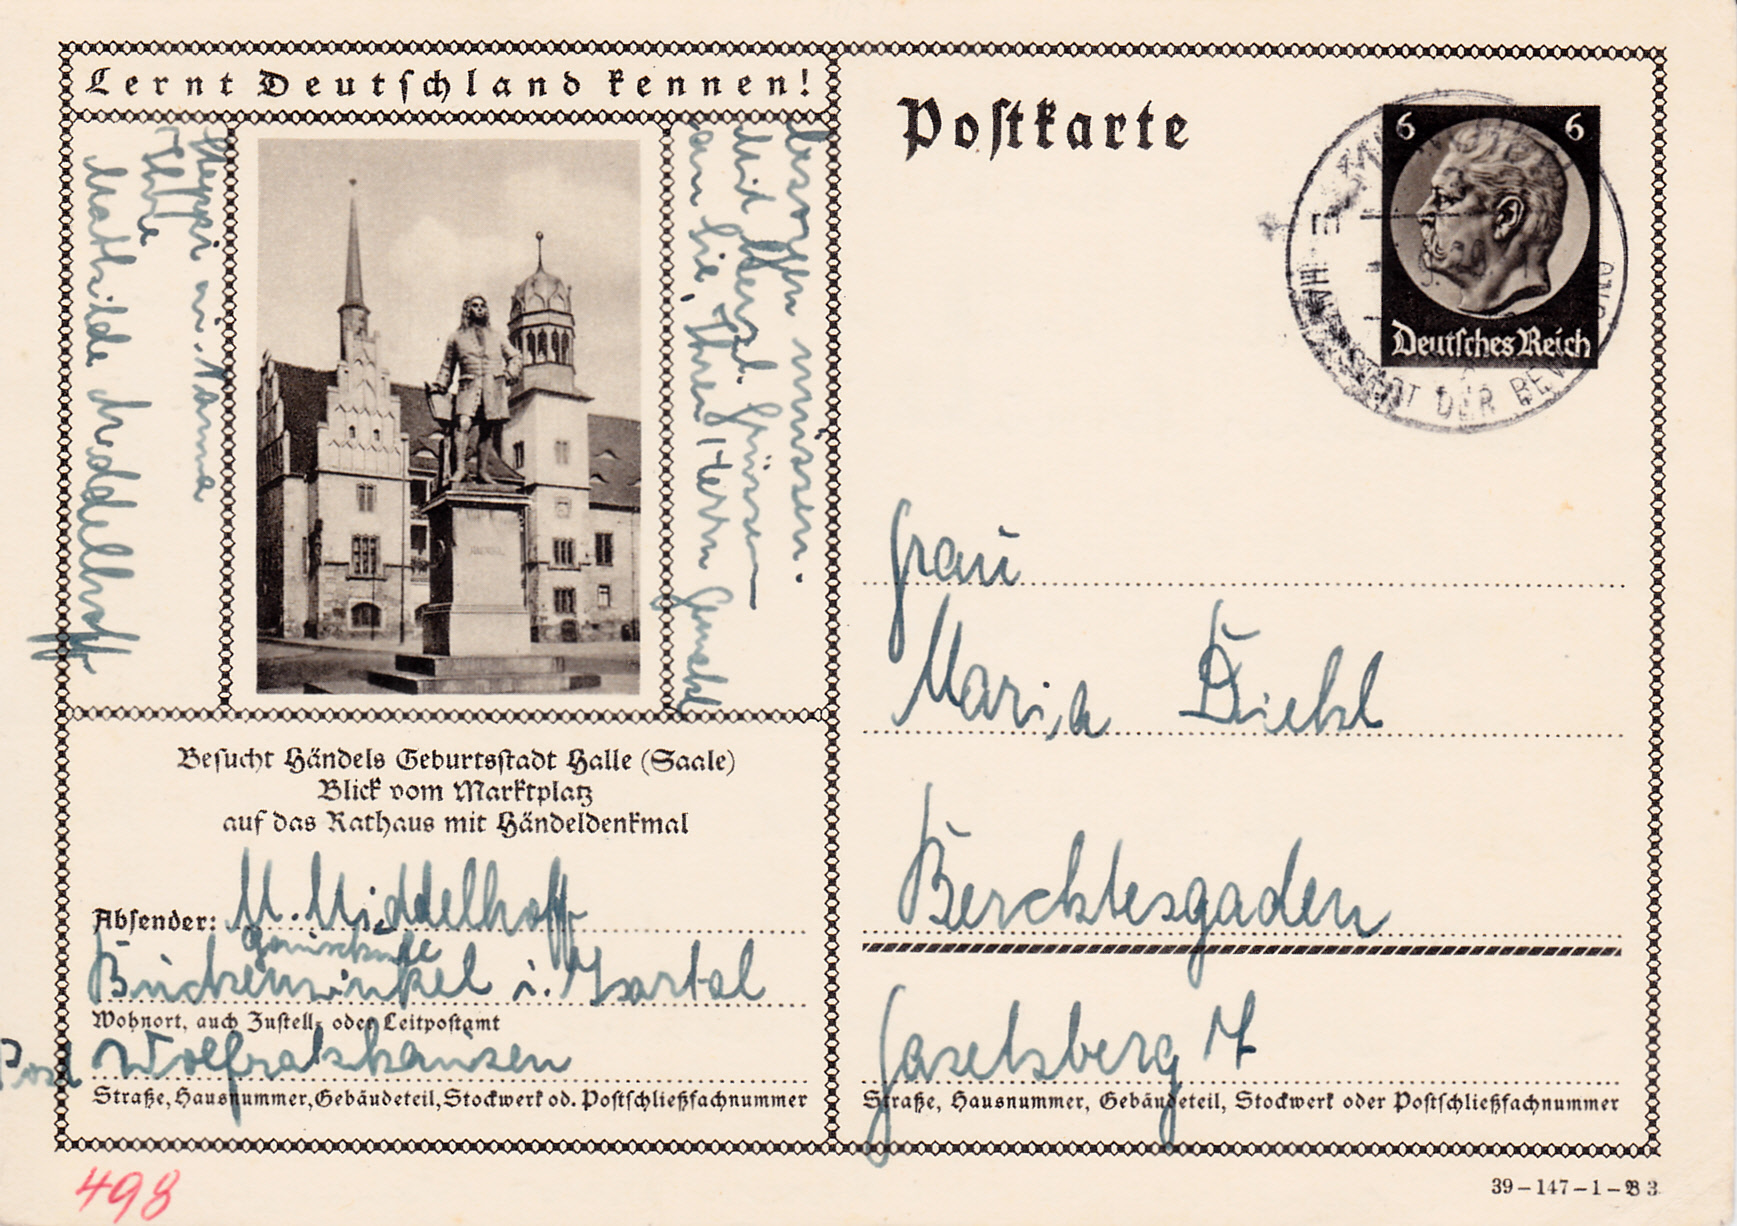 Lernt Deutschland kennen!
Postkarte
6 6
Deutsches Reich
DER BEW
müssen.
Mit herzl. Grüssen
an Sie, Ihren Herrn
Ihre
Mathilde Middelhoff
Besucht Händels Geburtsstadt Halle (Saale)
Blick vom Marktplatz
auf das Rathaus mit Händeldenkmal
Absender: M. Middelhoff
i. Isartal
Wohnort, auch Zustell- oder Leitpostamt
Post Wolfratshausen
Straße, Hausnummer, Gebäudeteil, Stockwerk od. Postschließfachnummer
Frau
Maria Diehl
Berchtesgaden
Straße, Hausnummer, Gebäudeteil, Stockwerk oder Postschließfachnummer
498
39–147–1–B 3